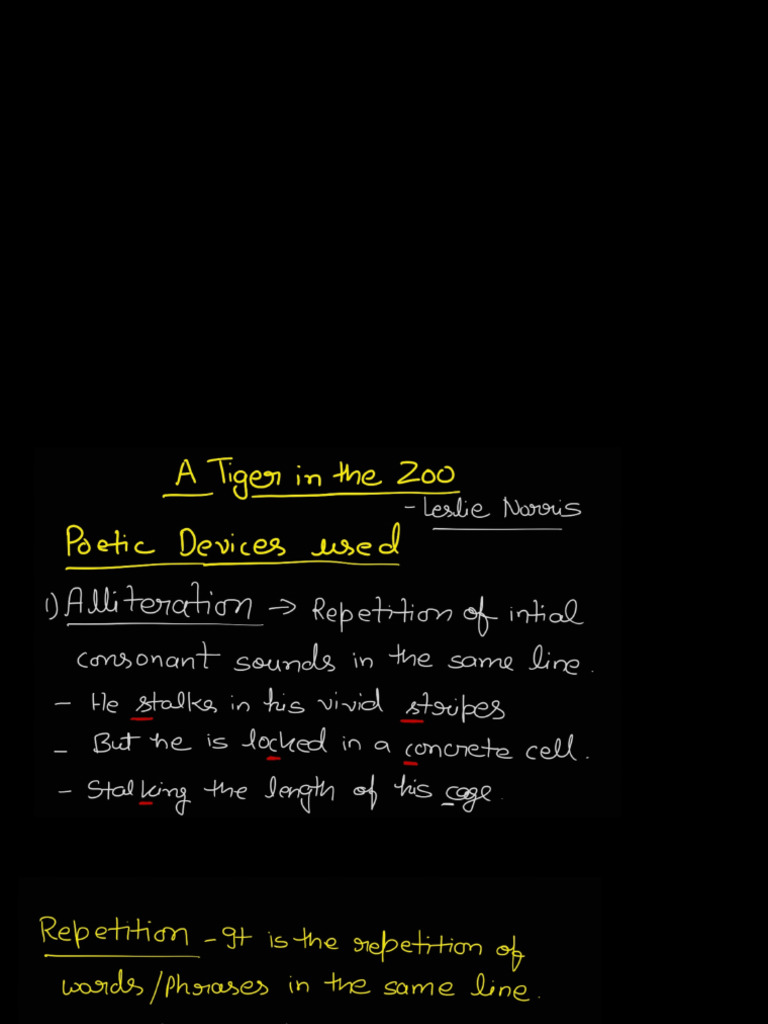 A Tiger in the Zoo
- Leslie Norris
Poetic Devices used
1) Alliteration → Repetition of intial
consonant sounds in the same line.
- He stalks in his vivid stripes
- But he is locked in a concrete cell.
- Stalking the length of his cage.
Repetition - It is the repetition of
words/Phrases in the same line.